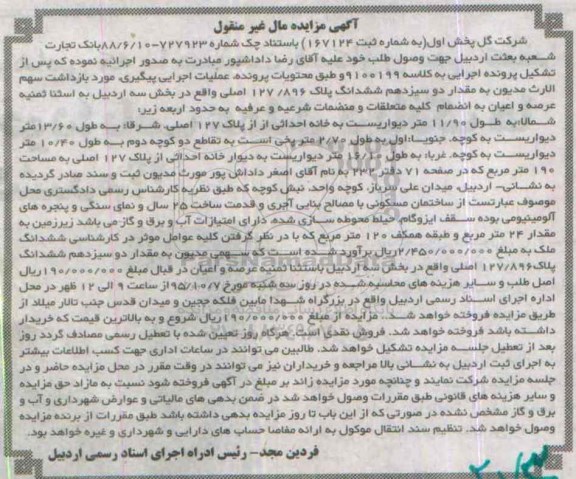 آگهی مزایده مال غیر منقول
شرکت گل پخش اول(به شماره ثبت ۱۶۷۱۲۴) باستناد چک شماره ۷۲۷۹۲۳-۸۸/۶/۱۰بانک تجارت
شعبه بعثت اردبیل جهت وصول طلب خود علیه آقای رضا داداشپور مبادرت به صدور اجرائیه نموده که پس از
تشکیل پرونده اجرایی به کلاسه ۹۱۰۰۱۹۹و طبق محتویات پرونده، عملیات اجرایی پیگیری، مورد بازداشت سهم
الارث مدیون به مقدار دو سیزدهم ششدانگ پلاک ۱۲۷/۸۹۶ اصلی واقع در بخش سه اردبیل به استثنا ثمنیه
عرصه و اعیان به انضمام کلیه متعلقات و منضمات شرعیه و عرفیه به حدود اربعه زیر:
شمالا:به طول ۱۱/۹۰ متر دیواریست به خانه احداثی از از پلاک ۱۲۷ اصلی. شرقا: به طول ۱۳/۶۰متر
دیواریست به کوچه. جنوبا:اول به طول ۲/۷۰ متر پخی است به تقاطع دو کوچه دوم به طول ۱۰/۴۰ متر
دیواریست به کوچه. غربا: به طول متر دیواریست به دیوار خانه احداثی از پلاک ۱۲۷ اصلی به مساحت
۱۹۰ متر مربع که در صفحه ۷۱ دفتر ۲۳۲ به نام آقای اصغر داداش پور مورث مدیون ثبت و سند صادر گردیده
به نشانی- اردبیل، میدان علی سرباز، کوچه واحد، نبش کوچه که طبق نظریه کارشناس رسمی دادگستری محل
موصوف عبارتست از ساختمان مسکونی با مصالح بنایی آجری و قدمت ساخت ۲۵ سال و نمای سنگی و پنجره های
آلومینیومی بوده سقف ایزوگام، حیاط محوطه سازی شده، دارای امتیازات آب و برق و گاز می باشد زیرزمین به
مقدار ۲۴ متر مربع و طبقه همکف ۱۲۰ متر مربع که با در نظر گرفتن کلیه عوامل موثر در کارشناسی ششدانگ
ملک به مبلغ ۲/۴۵۰/۰۰۰/۰۰۰ریال برآورد شده است که سهمی مدیون به مقدار دو سیزدهم ششدانگ
پلاک۱۲۷/۸۹۶ اصلی واقع در بخش سه اردبیل باستثنا ثمنیه عرصه و اعیان در قبال مبلغ ۱۹۰/۰۰۰/۰۰۰ریال
اصل طلب و سایر هزینه های محاسبه شده در روز سه شنبه مورخ ۹۵/۱۰/۷از ساعت ۹ الی ۱۲ ظهر در محل
اداره اجرای اسناد رسمی اردبیل واقع در بزرگراه شهدا مابین فلکه ججین و میدان قدس جنب تالار میلاد از
طریق مزایده فروخته خواهد شد. مزایده از مبلغ ۱۹۰/۰۰۰/۰۰۰ریال شروع و به بالاترین قیمت که خریدار
داشته باشد فروخته خواهد شد. فروش نقدی است هرگاه روز تعیین شده با تعطیل رسمی مصادف گردد روز
بعد از تعطیل جلسه مزایده تشکیل خواهد شد. طالبین می توانند در ساعات اداری جهت کسب اطلاعات بیشتر
به اجرای ثبت اردبیل به نشانی بالا مراجعه و خریداران نیز می توانند در وقت مقرر در محل مزایده حاضر و در
جلسه مزایده شرکت نمایند و چنانچه مورد مزایده زائد بر مبلغ در آگهی فروخته شود نسبت به مازاد حق مزایده
و سایر هزینه های قانونی طبق مقررات وصول خواهد شد در ضمن بدهی های مالیاتی و عوارض شهرداری و آب و
برق و گاز مشخص نشده در صورتی که از این باب تا روز مزایده بدهی داشته باشد طبق مقررات از برنده مزایده
وصول خواهد شد. تنظیم سند انتقال موکول به ارائه مفاصا حساب های دارایی و شهرداری و غیره خواهد بود.
فردین مجد- رئیس ادراه اجرای اسناد رسمی اردبیل